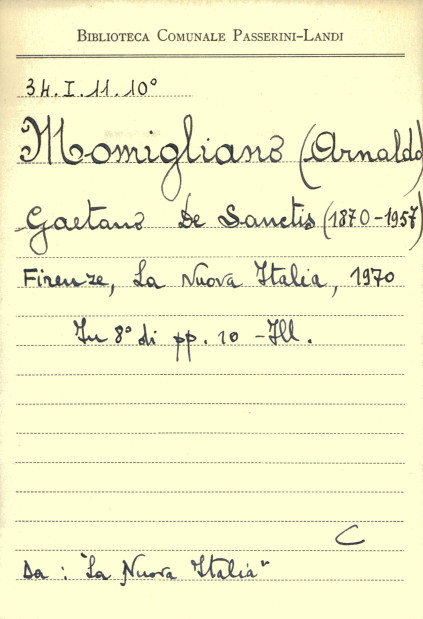 BIBLIOTECA COMUNALE PASSERINI-LANDI
34.I.11.10°
Momigliano (Arnaldo)
Gaetano De Sanctis (1870-1957)
Firenze, La Nuova Italia, 1970
In 8° di pp. 10 - Ill.
C
Da: "La Nuova Italia"